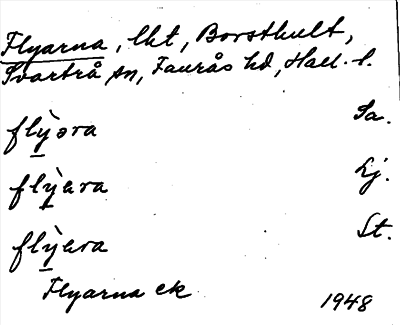 Flyarna, lkt, Borsthult,
Svartrå sn, Faurås hd, Hall. l.
flỳəra Sa.
flỳara Lj.
flỳara St.
Flyarna ek
1948